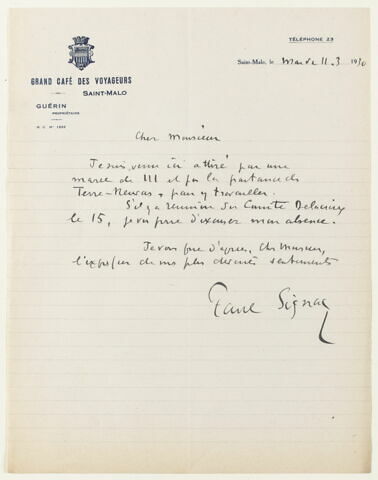 TÉLÉPHONE 23
GRAND CAFÉ DES VOYAGEURS
SAINT-MALO
GUÉRIN
PROPRIÉTAIRE
R. C. Nº
Saint-Malo, le mardi 11.3 1930
Cher Monsieur
Je suis venu ici attiré par une
marée de 111 et par la partance des
Terre-Neuvas, pour y travailler.
S'il y a réunion du Comité Delacroix
le 15, je vous prie d'excuser mon absence.
Je vous prie d'agréer, cher Monsieur,
l'expression de mes plus dévoués sentiments
Paul Signac